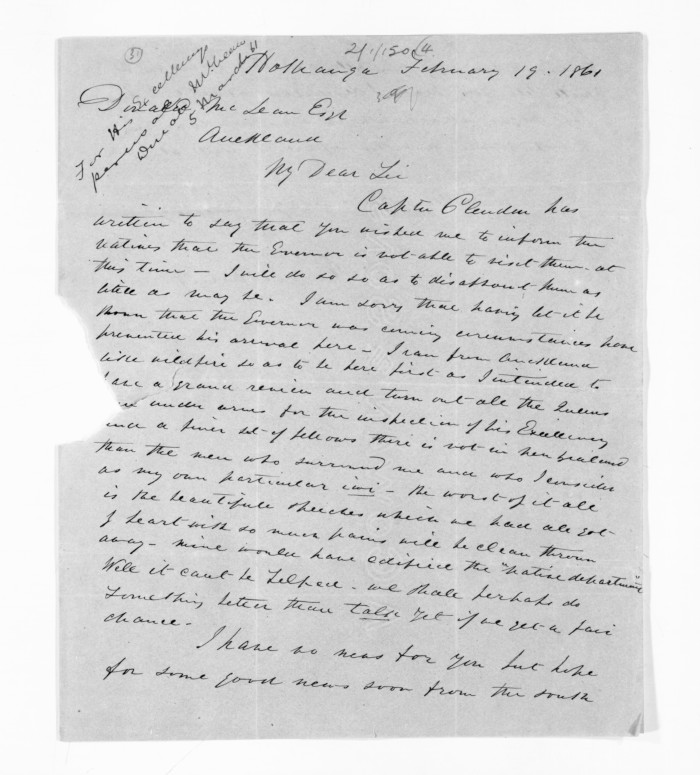 (51)
21/1/1504
Hokianga February 19. 1861
For His Excellency
perusal Mr McLean
Donald
5 March 61
Donald McLean Esqr
Auckland
My Dear Sir
Captn Clendon has
written to say that you wished me to inform the
natives that the Governor is not able to visit them at
this time – I will do so so as to disappoint them as
little as may be. I am sorry that having let it be
known that the Governor was coming circumstances have
prevented his arrival here – I ran from Auckland
like wildfire so as to be here first as I intended to
have a grand review and turn out all the Queens
men under arms for the inspection of his Excellency
and a finer set of fellows there is not in new zealand
than the men who surround me and who I consider
as my own particular iwi – the worst of it all
is the beautiful speeches which we had all got
of heart with so much pains will be clean thrown
away – mine would have edified the "native department"
Well it cant be helped – we shall perhaps do
something better than talk yet if we get a fair
chance –
I have no news for you but hope
for some good news soon from the south